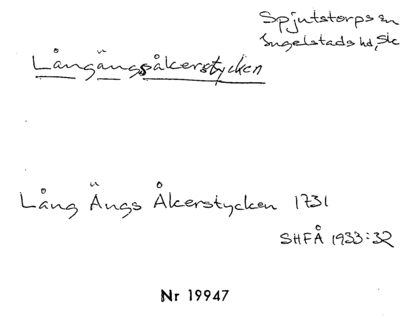 Spjutstorps sn
Ingelstads hd, Sk
Långängsåkerstycken
Lång Ängs Åkerstycken 1731
SHFÅ 1933:32
Nr 19947